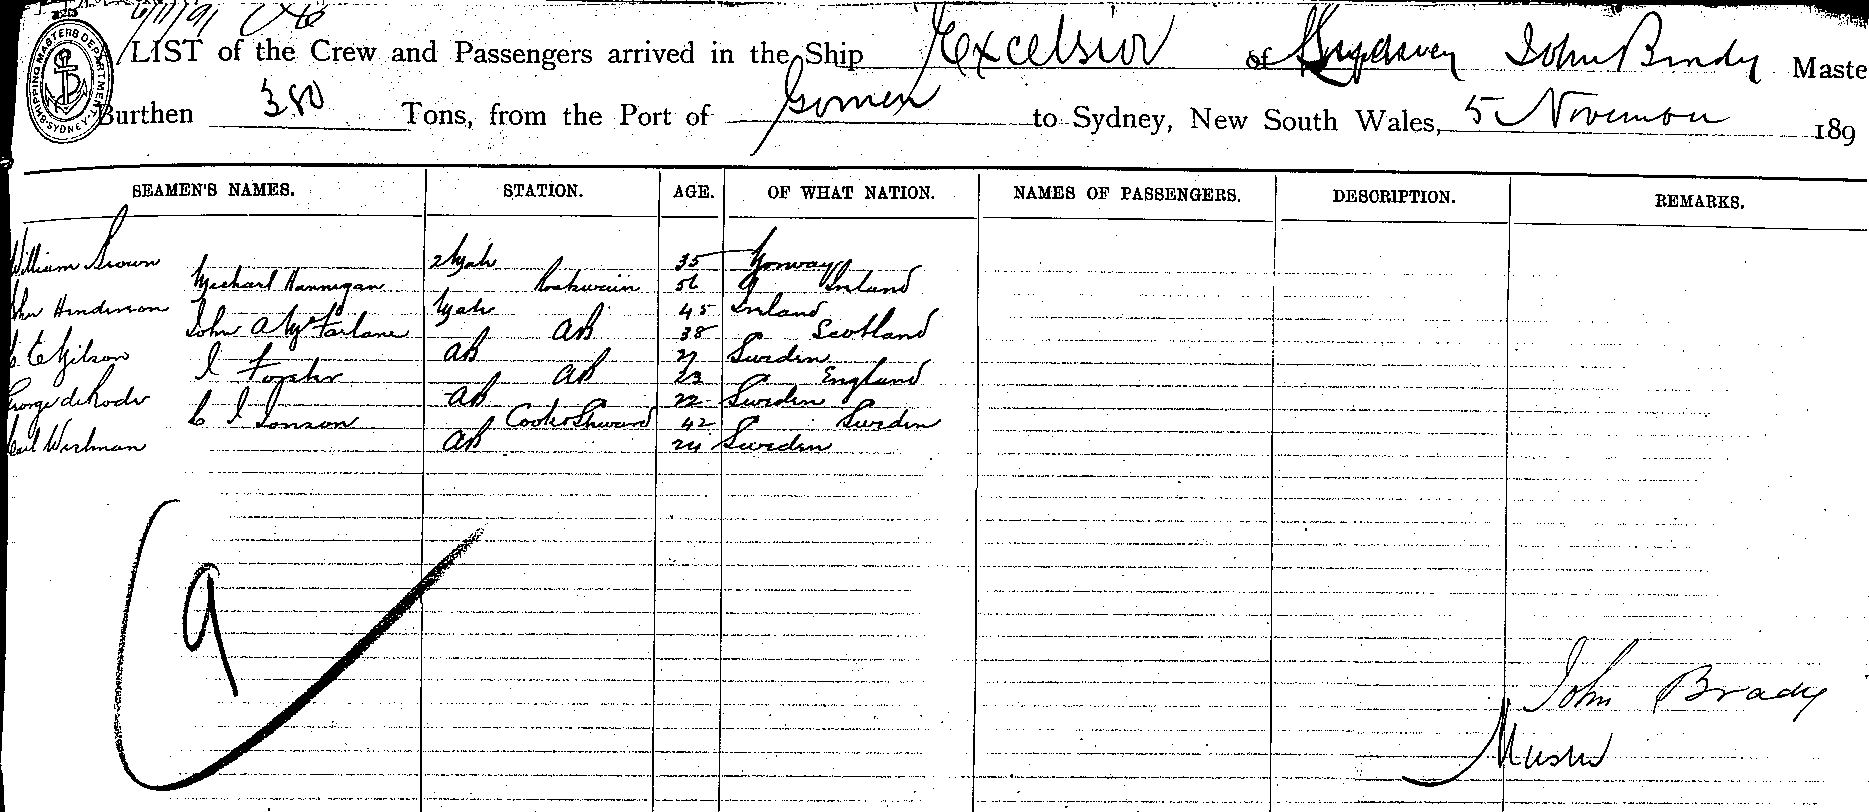 6/11/91
SHIPPING MASTERS DEPARTMENT. SYDNEY.
LIST of the Crew and Passengers arrived in the Ship Excelsior of Sydney John Brady Maste
Burthen 380 Tons, from the Port of Gomen to Sydney, New South Wales, 5 November 189
SEAMEN'S NAMES. STATION. AGE. OF WHAT NATION. NAMES OF PASSENGERS. DESCRIPTION. REMARKS.
William Brown 35 Norway
Michael Hannigan 56 Ireland
Henderson 45 Ireland
John A McFarlane AB 38 Scotland
AB Sweden
I AB 23 England
George de Rode AB 22 Sweden
C I Cook & Steward 42 Sweden
AB 24 Sweden
9
John Brady
Master